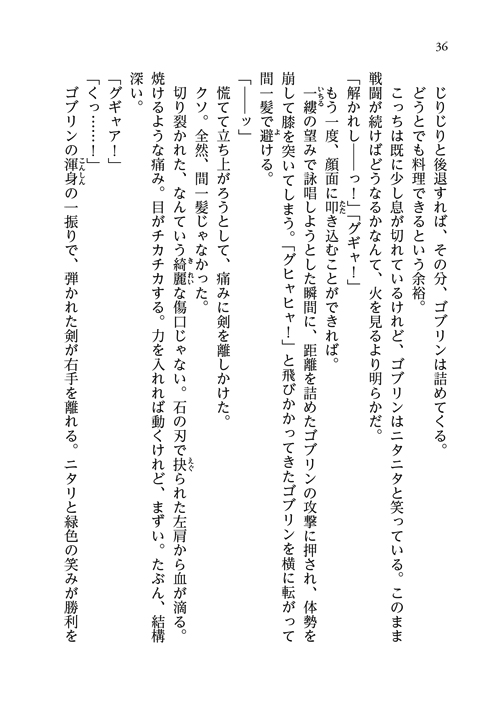 36
じりじりと後退すれば、その分、ゴブリンは詰めてくる。
どうとでも料理できるという余裕。
こっちは既に少し息が切れているけれど、ゴブリンはニタニタと笑っている。このまま
戦闘が続けばどうなるかなんて、火を見るより明らかだ。
「解かれし――っ！」「グギャ！」
もう一度、顔面に叩き込むことができれば。
一縷の望みで詠唱しようとした瞬間に、距離を詰めたゴブリンの攻撃に押され、体勢を
崩して膝を突いてしまう。「グヒャヒャ！」と飛びかかってきたゴブリンを横に転がって
間一髪で避ける。
「――ッ」
慌てて立ち上がろうとして、痛みに剣を離しかけた。
クソ。全然、間一髪じゃなかった。
切り裂かれた、なんていう綺麗な傷口じゃない。石の刃で抉られた左肩から血が滴る。
焼けるような痛み。目がチカチカする。力を入れれば動くけれど、まずい。たぶん、結構
深い。
「グギャア！」
「くっ……！」
ゴブリンの渾身の一振りで、弾かれた剣が右手を離れる。ニタリと緑色の笑みが勝利を